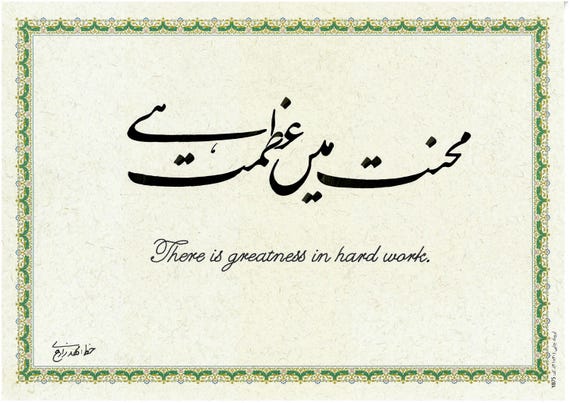 محنت میں عظمت ہے
There is greatness in hard work.